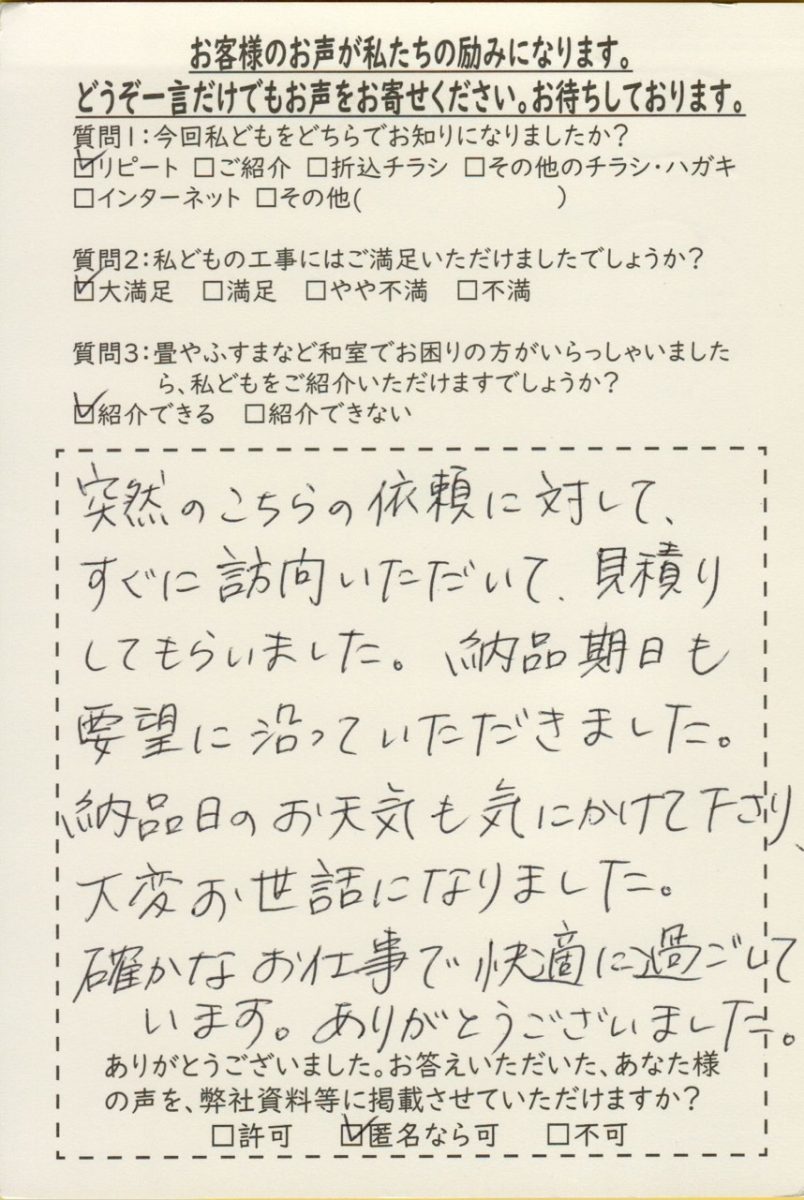 お客様のお声が私たちの励みになります。
どうぞ一言だけでもお声をお寄せください。お待ちしております。
質問1：今回私どもをどちらでお知りになりましたか？
☑リピート □ご紹介 □折込チラシ □その他のチラシ・ハガキ
□インターネット □その他(　　　　　　　　)
質問2：私どもの工事にはご満足いただけましたでしょうか？
☑大満足 □満足 □やや不満 □不満
質問3：畳やふすまなど和室でお困りの方がいらっしゃいました
ら、私どもをご紹介いただけますでしょうか？
☑紹介できる □紹介できない
突然のこちらの依頼に対して、
すぐに訪向いただいて、見積り
してもらいました。納品期日も
要望に沿っていただきました。
納品日のお天気も気にかけて下さり、
大変お世話になりました。
確かなお仕事で快適に過ごして
います。ありがとうございました。
ありがとうございました。お答えいただいた、あなた様
の声を、弊社資料等に掲載させていただけますか？
□許可 ☑匿名なら可 □不可